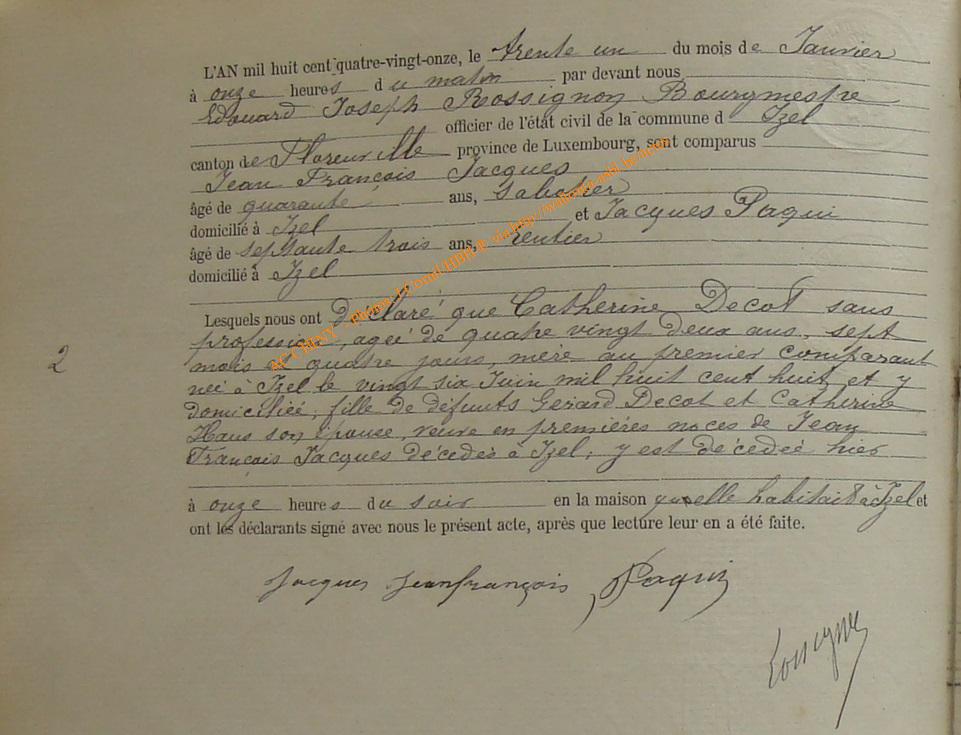 L'AN mil huit cent quatre-vingt-onze, le trente un du mois de Janvier
à onze heures du matin par devant nous
Edouard Joseph Rossignon Bourgmestre
officier de l'état civil de la commune d Izel
canton de Florenville province de Luxembourg, sont comparus
Jean François Jacques
âgé de quarante ans, sabotier
domicilié à Izel et Jacques Paqui
âgé de septante trois ans, rentier
domicilié à Izel
Lesquels nous ont déclaré que Catherine Decot sans
profession, agée de quatre vingt deux ans, sept
mois et quatre jours, mère au premier comparant
née à Izel le vingt six Juin mil huit cent huit et y
domiciliée, fille de défunts Gerard Decot et Catherine
Haus son épouse, veuve en premières noces de Jean
François Jacques décédés à Izel, y est décédée hier
2
à onze heures du soir en la maison qu'elle habitait à Izel et
ont les déclarants signé avec nous le présent acte, après que lecture leur en a été faite.
Jacques Jean françois Paqui